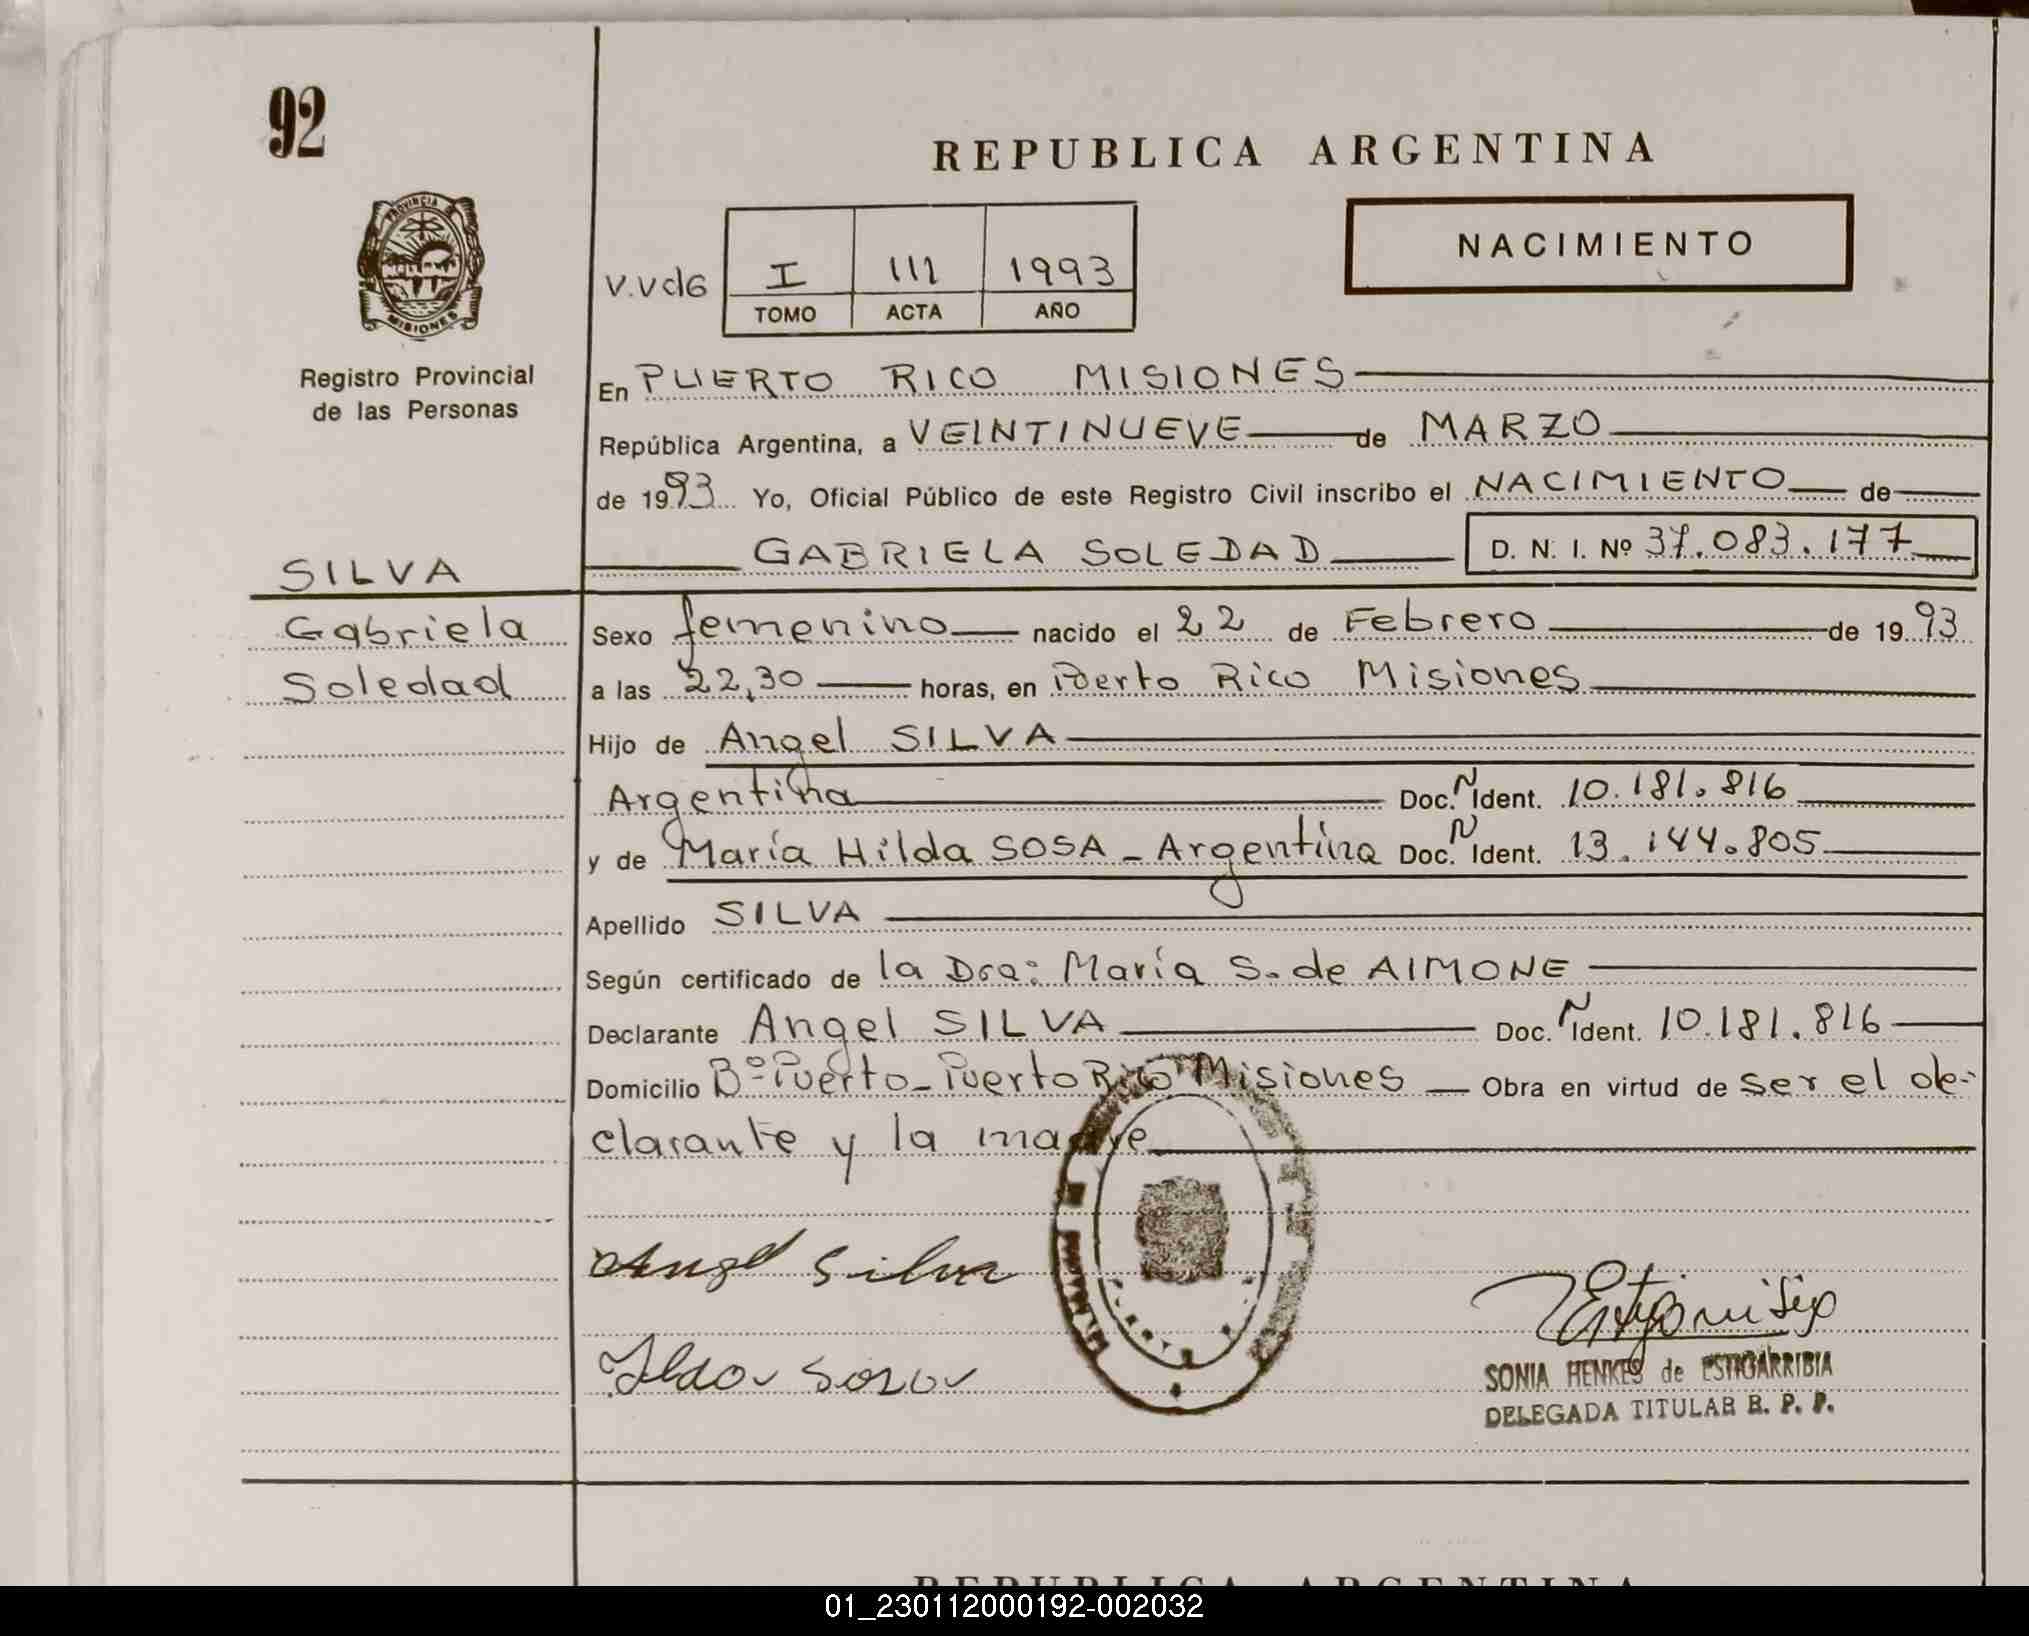 92
REPUBLICA ARGENTINA
NACIMIENTO
PROVINCIA DE
MISIONES
Registro Provincial
de las Personas
V.VdG
I 111 1993
TOMO ACTA AÑO
En PUERTO RICO MISIONES
República Argentina, a VEINTINUEVE de MARZO
de 1993 Yo, Oficial Público de este Registro Civil inscribo el NACIMIENTO de
GABRIELA SOLEDAD D. N. I. Nº 37.083.177
SILVA
Gabriela
Soledad
Sexo femenino nacido el 22 de Febrero de 1993
a las 22,30 horas, en Puerto Rico Misiones
Hijo de Angel SILVA
Argentina Doc. N Ident. 10.181.816
y de María Hilda SOSA - Argentina Doc. N Ident. 13.144.805
Apellido SILVA
Según certificado de la Dra: María S. de AIMONE
Declarante Angel SILVA Doc. N Ident. 10.181.816
Domicilio Bº Puerto - Puerto Rico Misiones Obra en virtud de ser el de-
clarante y la madre
Angel Silva
Ilda Sosa
SONIA HENKES de ESTIGARRIBIA
DELEGADA TITULAR R. P. P.
REPUBLICA ARGENTINA
01_230112000192-002032